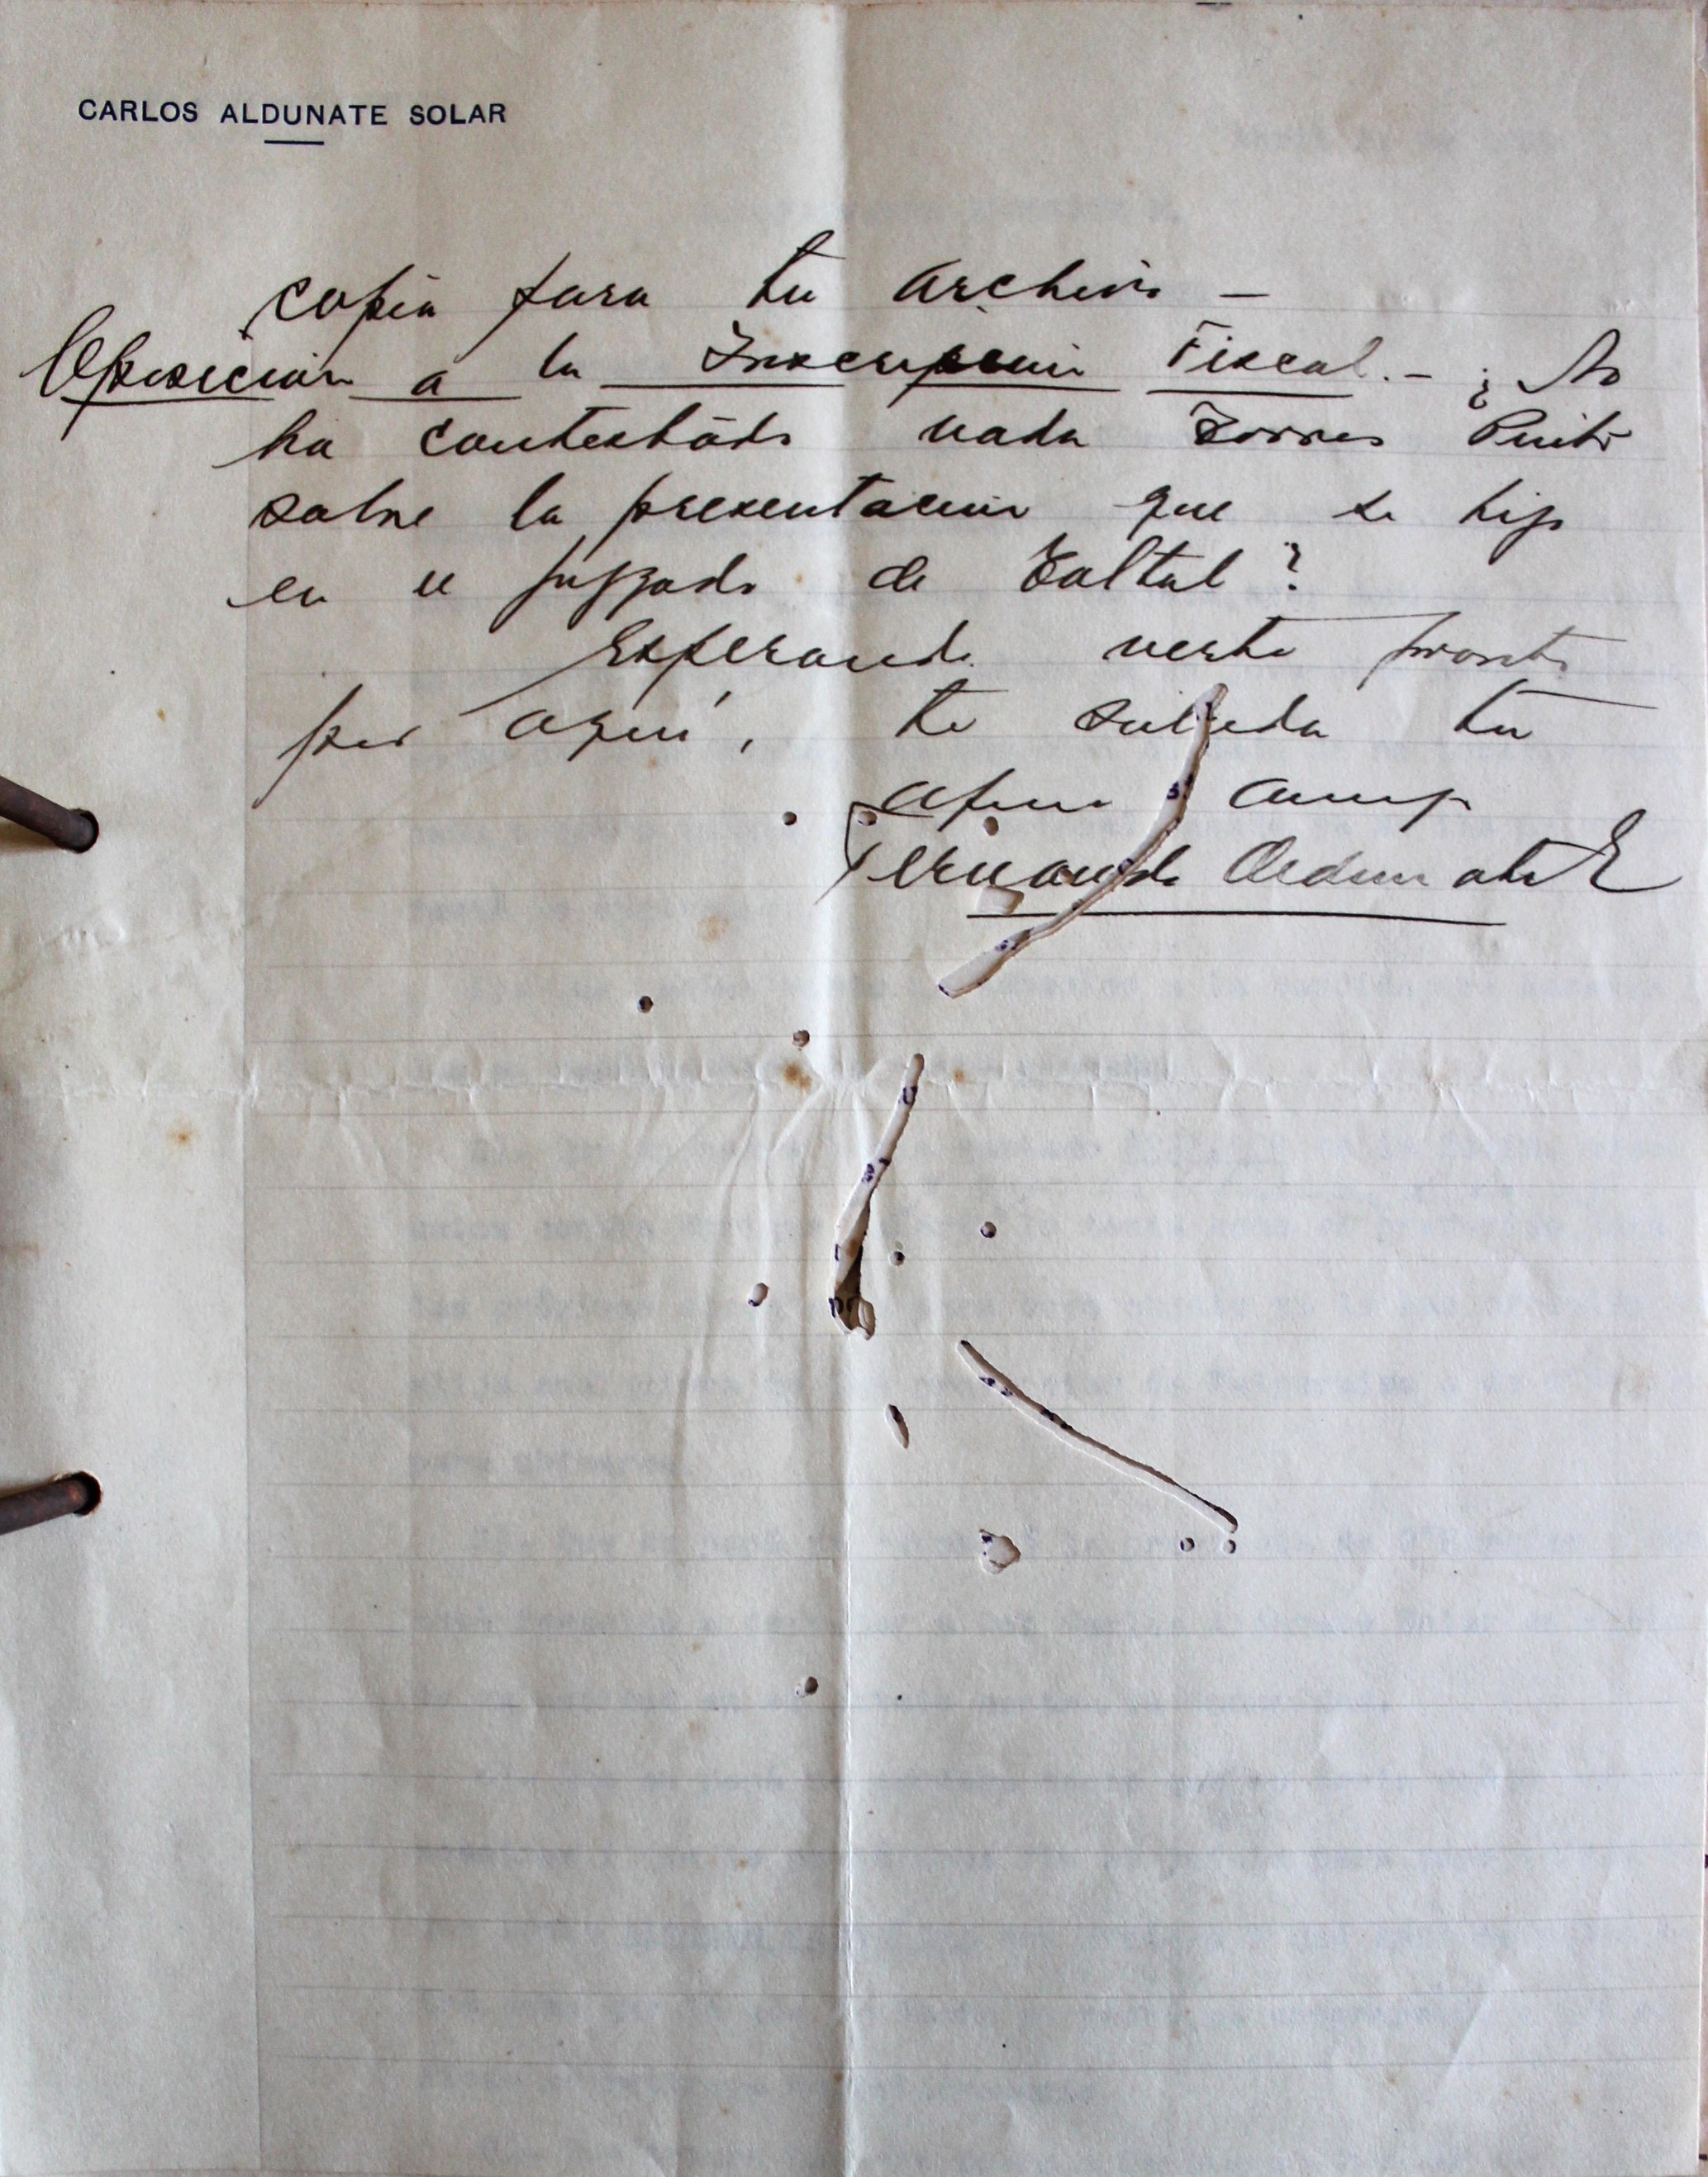 CARLOS ALDUNATE SOLAR
copia para tu archivo —
Oposicion a la Inscripcion Fiscal.- ¿No
ha contestado nada Torres Pinto
sobre la presentacion que se hizo
en el juzgado de Taltal?
Esperando verte pronto
por aquí, te saluda tu
afmo amigo
Fernando Aldunate E